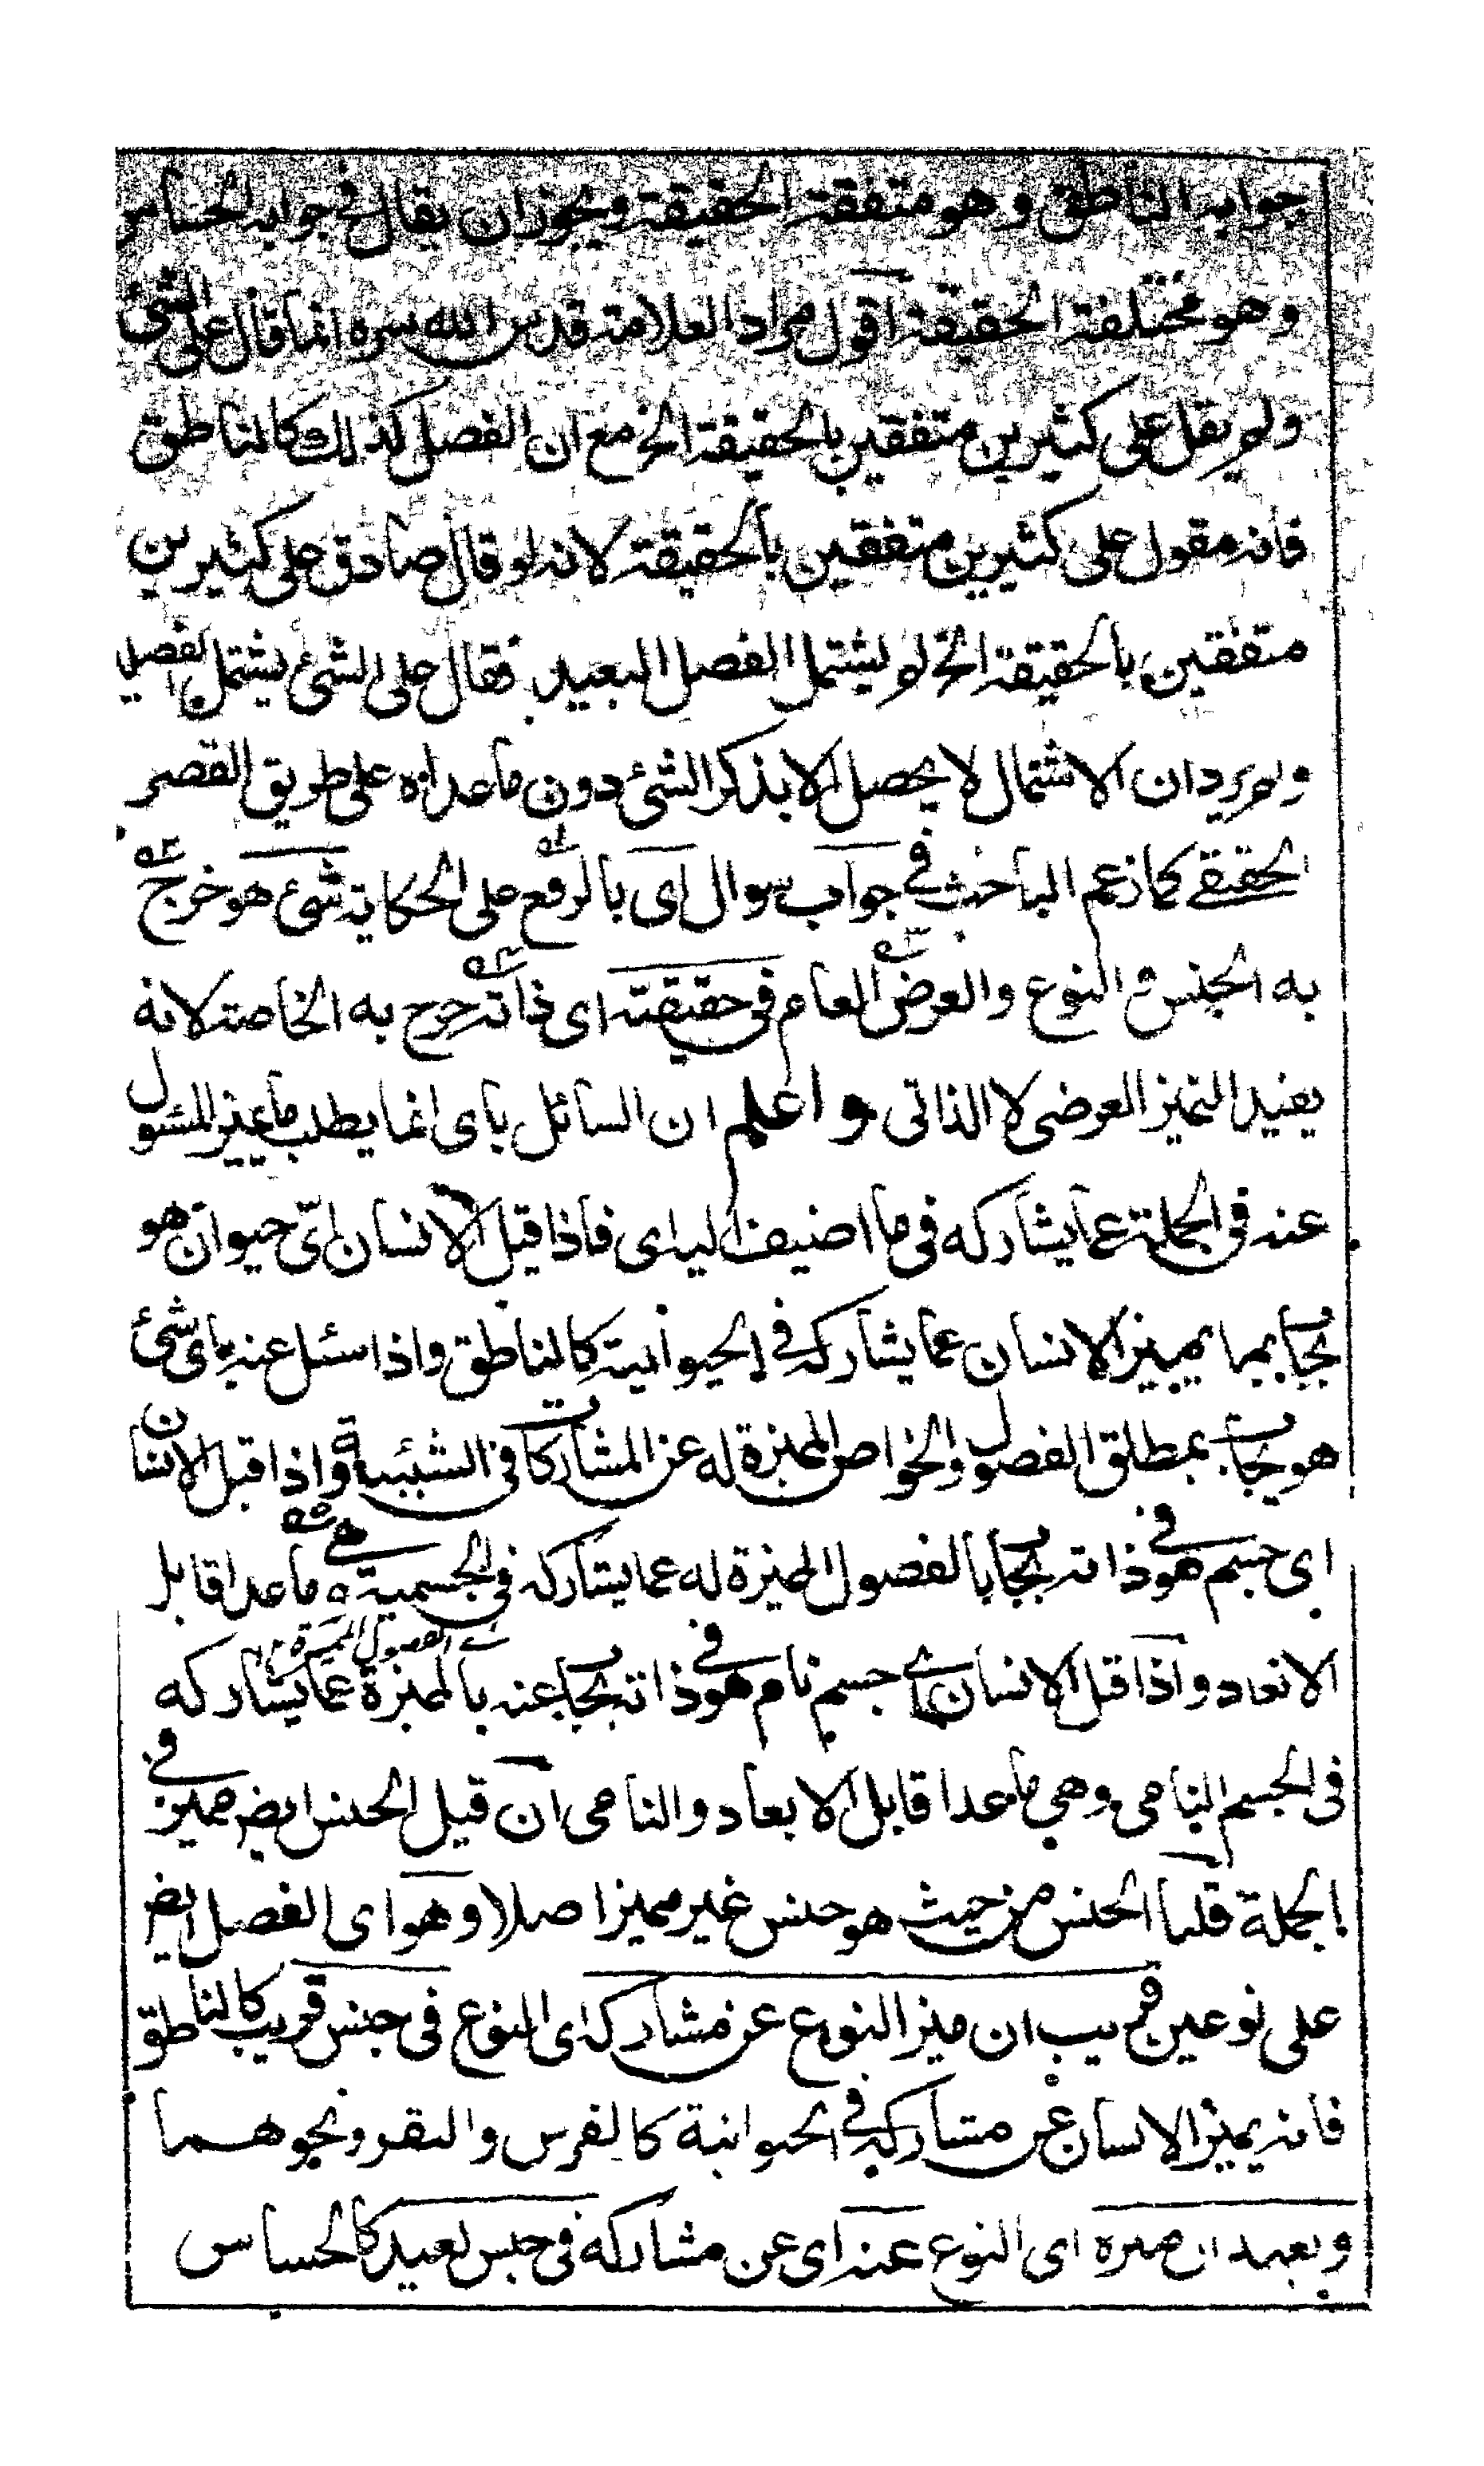 جوابه الناطق وهو متفقة الحقيقة ويجوز ان يقال في جوابه الحساس
وهو مختلفة الحقيقة اقول مراد العلامة قدس الله سره انما قال على الشئ
ولم يقل على كثيرين متفقين بالحقيقة الخ مع ان الفصل كذلك كالناطق
فانه مقول على كثيرين متفقين بالحقيقة لانه لو قال صادق على كثيرين
متفقين بالحقيقة الخ لو يشتمل الفصل البعيد فقال على الشئ يشتمل الفصل
ولم يرد ان الاشتمال لا يحصل الا بذكر الشئ دون ما عداه على طريق القصر
الحقيقے كما زعم الباحث في جواب سوال اى بالرفع على الحكاية شئ هو خرج
به الجنس و النوع والعرض العام في حقيقته اى ذاته خرج به الخاصة لانه
يفيد التميز العرضى لا الذاتى واعلم ان السائل باى انما يطلب ما يميز المسئول
عنه فى الجملة عما يشاركه فى ما اضيف اليه اى فاذا قيل الانسان اىّ حيوان هو
يجاب بما يميز الانسان عما يشاركه في الحيوانية كالناطق واذا سئل عنه باى شئ
هو يجاب بمطلق الفصول والخواص المميزة له عن المشاركات فى الشيئية واذا قيل الانسان
اى جسم هو في ذاته يجاب بالفصول المميزة له عما يشاركه فى الجسمية وهے ما عدا قابل
اے الفصول المميزة
الابعاد واذا قل الانسان اے جسم نام هو في ذاته يجاب عنه بالمميزة عما يشاركه
فى الجسم النامى وهي ما عدا قابل الابعاد والنامى ان قيل الجنس ايض مميز في
الجملة قلنا الجنس من حيث هو جنس غير مميز اصلا وهو اى الفصل ايض
على نوعين قريب ان ميز النوع عن مشاركه اى النوع فى جنس قريب كالناطق
فانه يميز الانسان عن مشاركه في الحيوانية كالفرس والبقر ونحوهما
وبعيد ان ميزه اى النوع عنه اى عن مشاركه فى جنس بعيد كالحساس